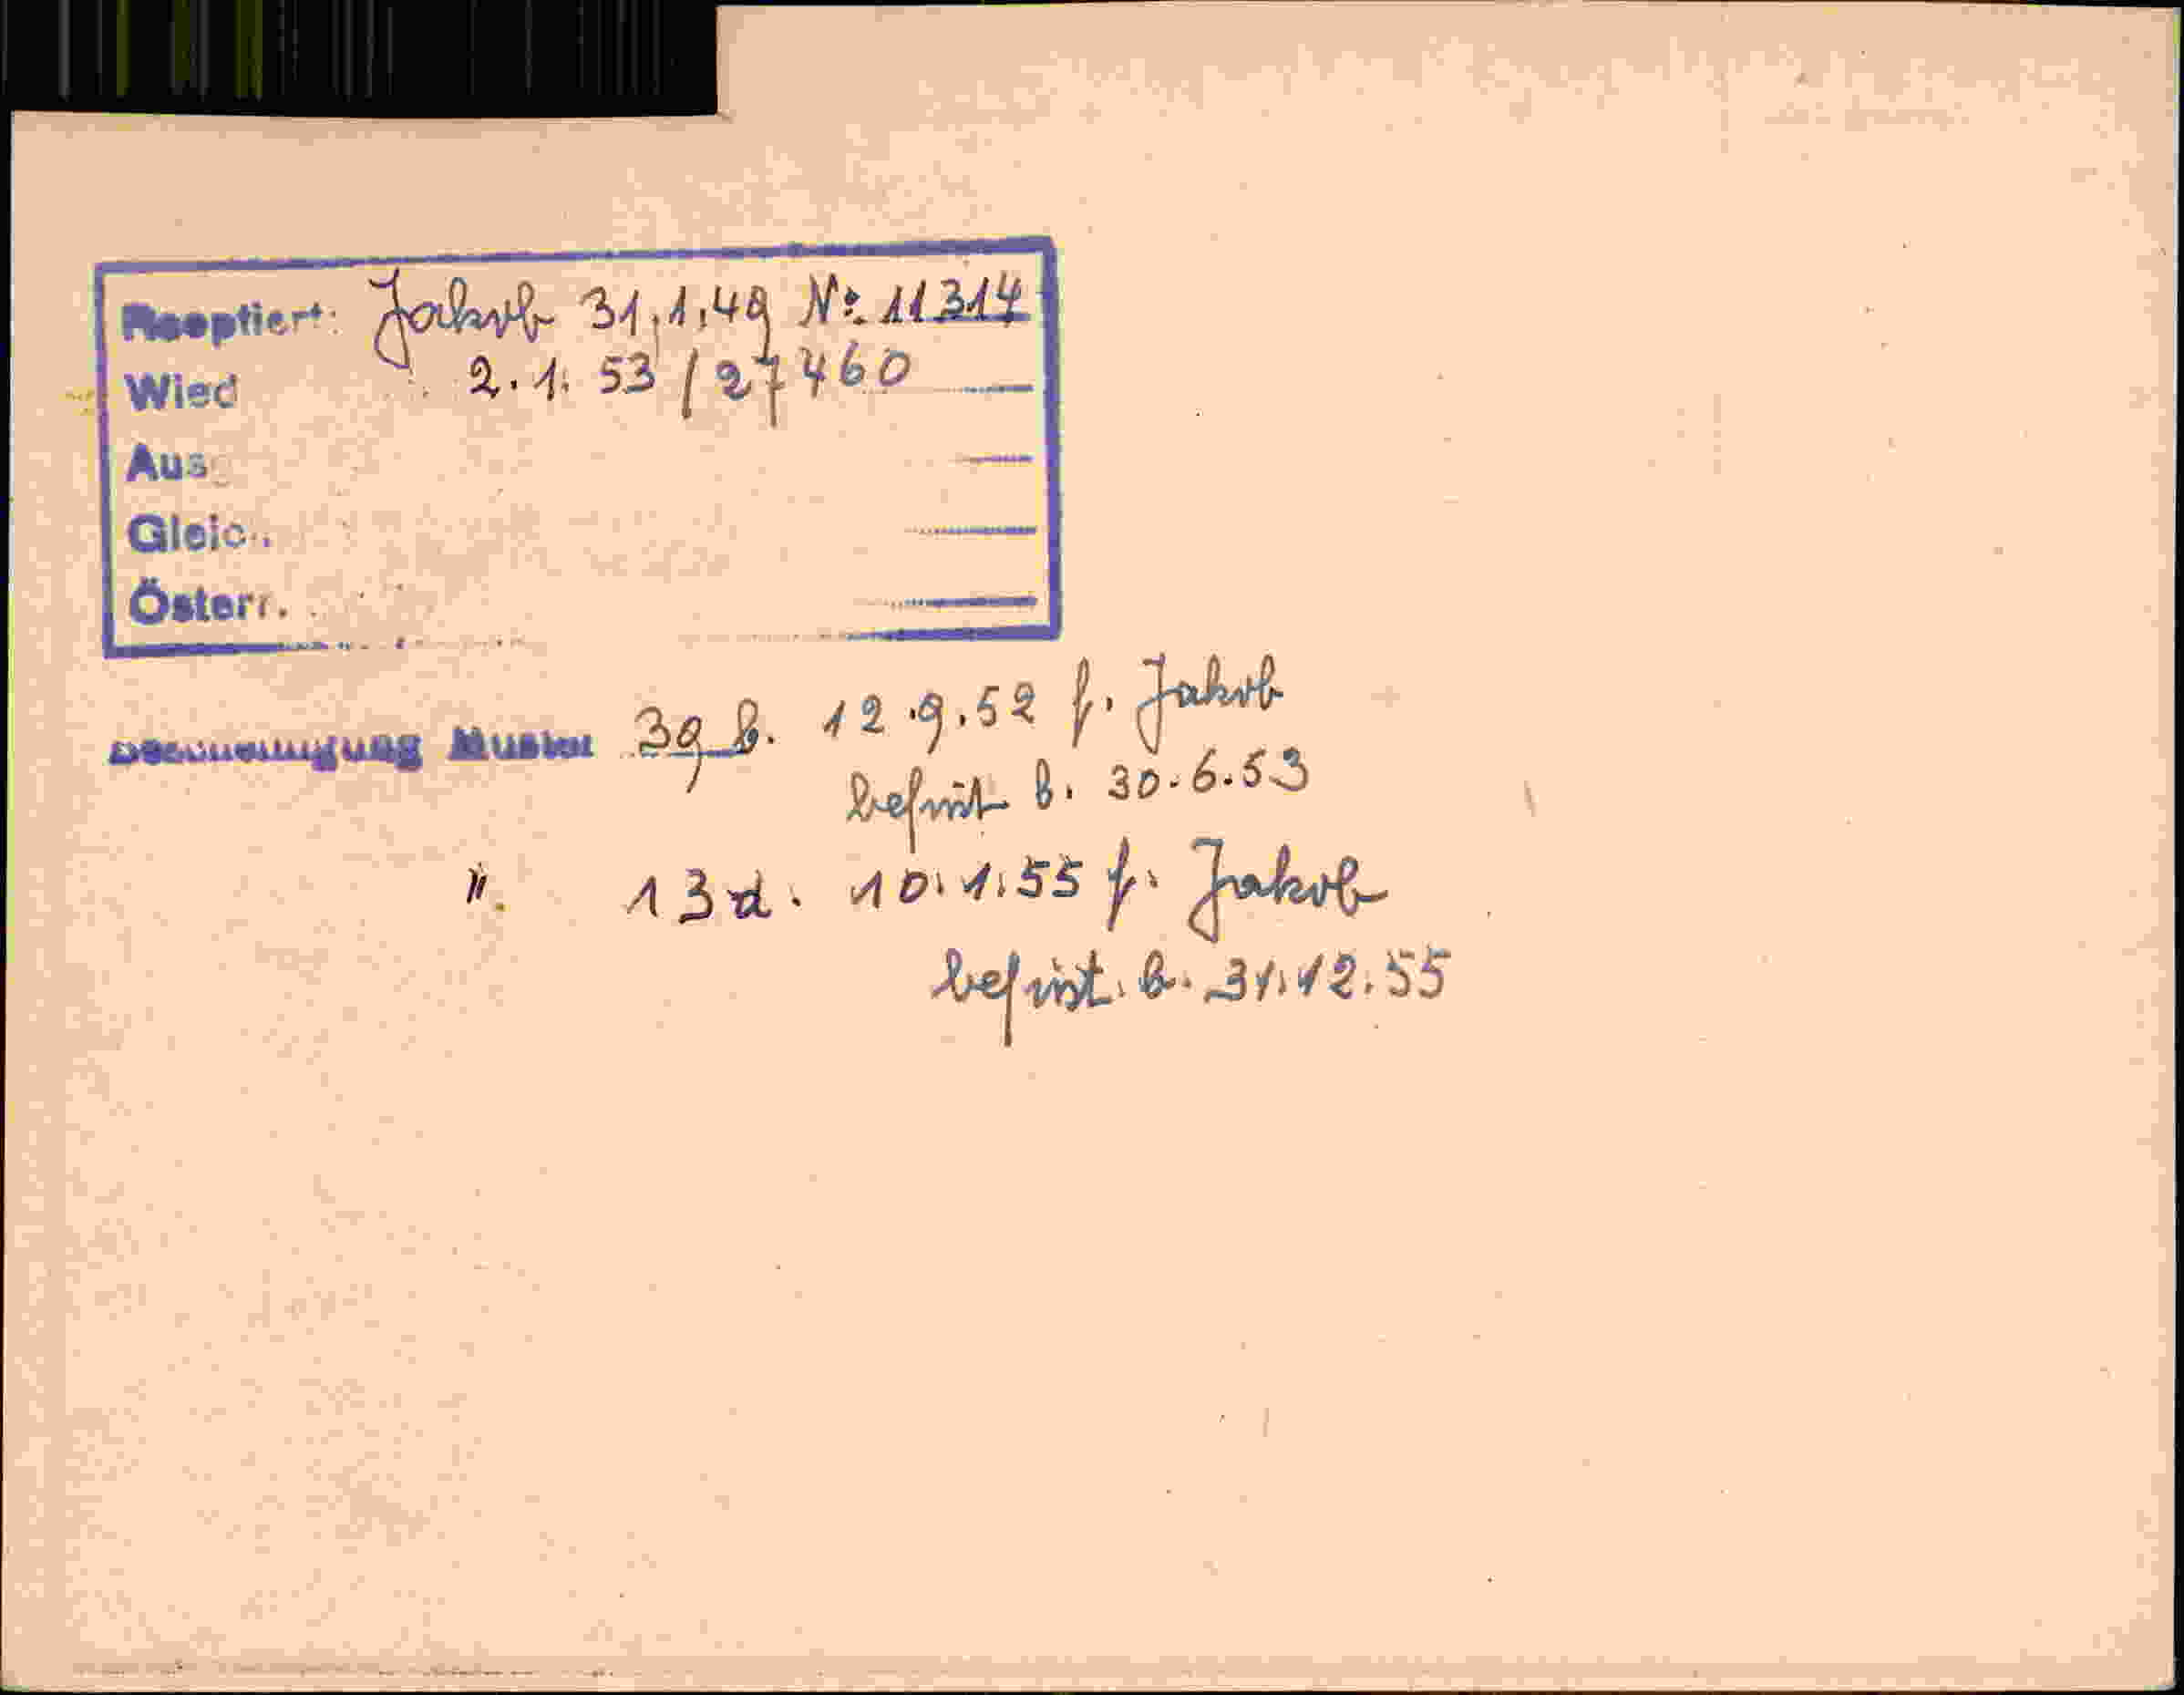 Reoptiert: Jakob 31.1.49 No. 11314
Wied 2.1.53 / 27460
Aus
Gleic..
Österr.
Bescheinigung Muster 39 b. 12.9.52 f. Jakob
befrist b. 30.6.53
". 13 d. 10.1.55 f. Jakob
befrist. b. 31.12.55